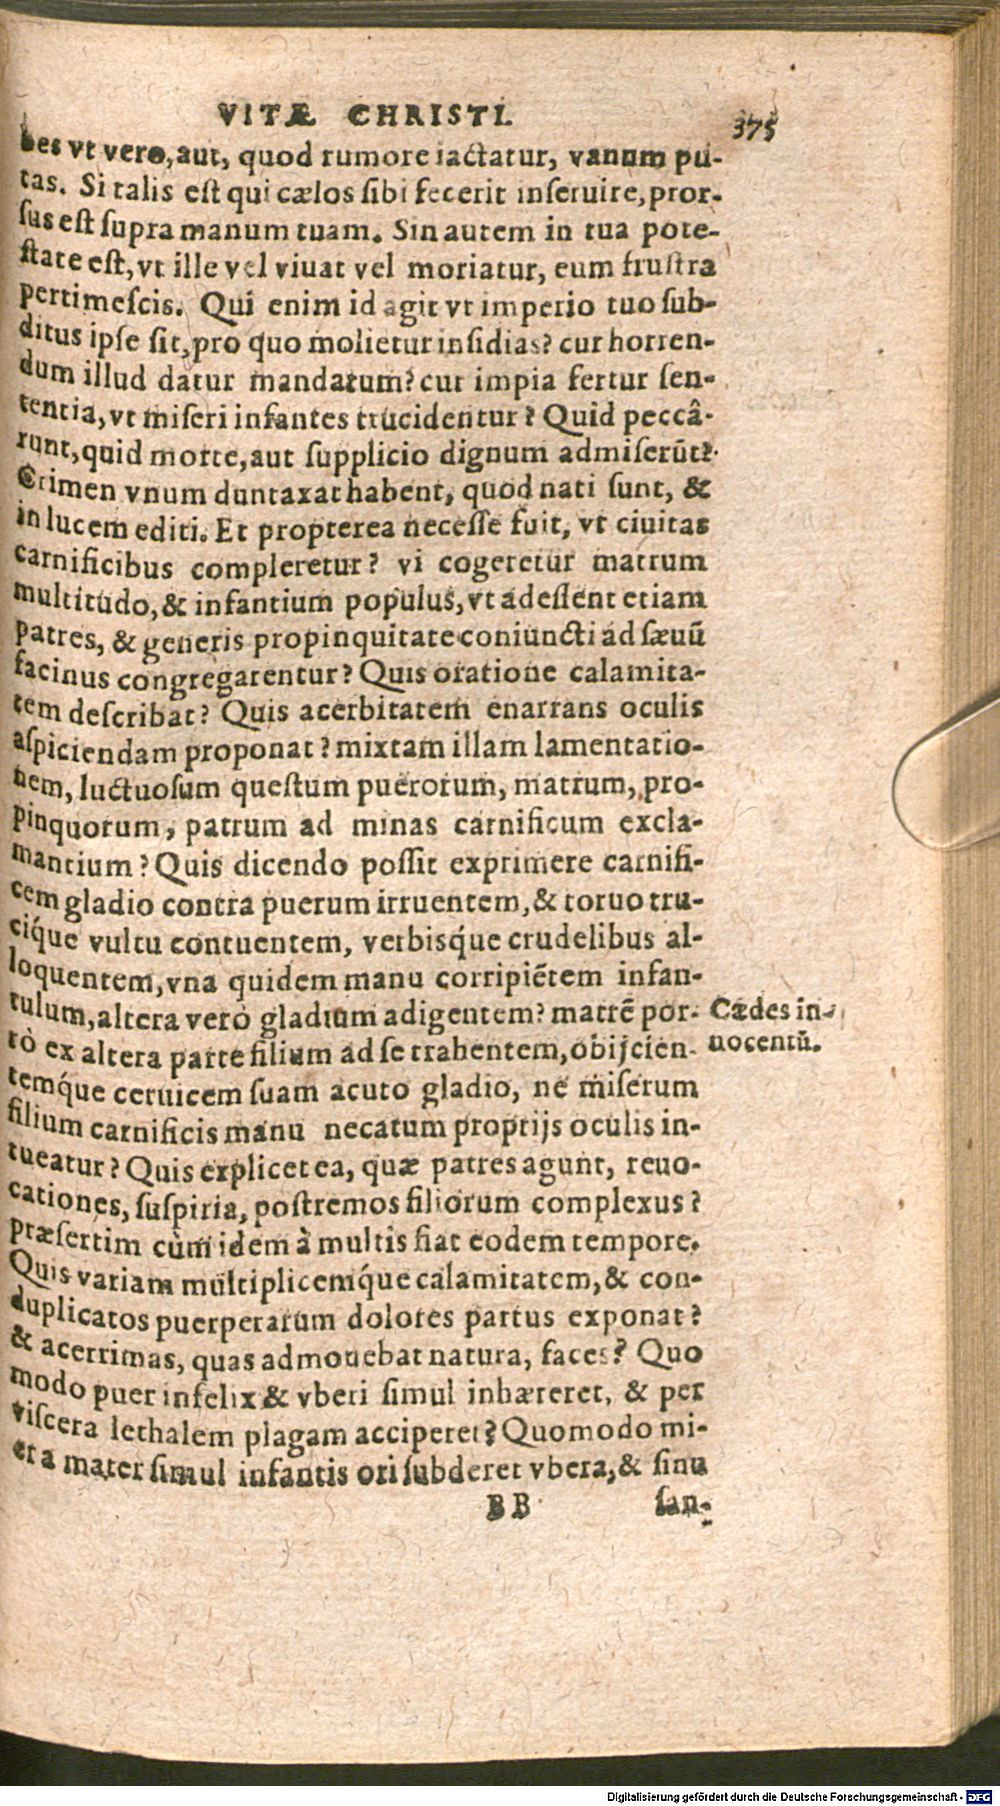 VITÆ CHRISTI. 375
bes vt vero, aut, quod rumore iactatur, vanum pu-
tas. Si talis est qui cælos sibi fecerit inseruire, pror-
sus est supra manum tuam. Sin autem in tua pote-
state est, vt ille vel viuat vel moriatur, eum frustra
pertimescis. Qui enim id agit vt imperio tuo sub-
ditus ipse sit, pro quo molietur insidias? cur horren-
dum illud datur mandatum? cur impia fertur sen-
tentia, vt miseri infantes trucidentur? Quid peccâ-
runt, quid morte, aut supplicio dignum admiserūt?
Crimen vnum duntaxat habent, quod nati sunt, &
in lucem editi. Et propterea necesse fuit, vt ciuitas
carnificibus compleretur? vi cogeretur matrum
multitudo, & infantium populus, vt adessent etiam
patres, & generis propinquitate coniuncti ad sæuū
facinus congregarentur? Quis oratione calamita-
tem describat? Quis acerbitatem enarrans oculis
aspiciendam proponat? mixtam illam lamentatio-
nem, luctuosum questum puerorum, matrum, pro-
pinquorum, patrum ad minas carnificum excla-
mantium? Quis dicendo possit exprimere carnifi-
cem gladio contra puerum irruentem, & toruo tru-
ciq́ue vultu contuentem, verbisq́ue crudelibus al-
loquentem, vna quidem manu corripiētem infan-
tulum, altera verò gladium adigentem? matrē por-
tò ex altera parte filium ad se trahentem, obijcien-
temq́ue ceruicem suam acuto gladio, ne miserum
filium carnificis manu necatum proprijs oculis in-
tueatur? Quis explicet ea, quæ patres agunt, reuo-
cationes, suspiria, postremos filiorum complexus?
præsertim cùm idem à multis fiat eodem tempore.
Quis variam multiplicemq́ue calamitatem, & con-
duplicatos puerperarum dolores partus exponat?
& acerrimas, quas admouebat natura, faces? Quo
modo puer infelix & vberi simul inhæreret, & per
viscera lethalem plagam acciperet? Quomodo mi-
era mater simul infantis ori subderet vbera, & sinu
BB san-
Cædes in-
nocentū.
Digitalisierung gefördert durch die Deutsche Forschungsgemeinschaft - DFG